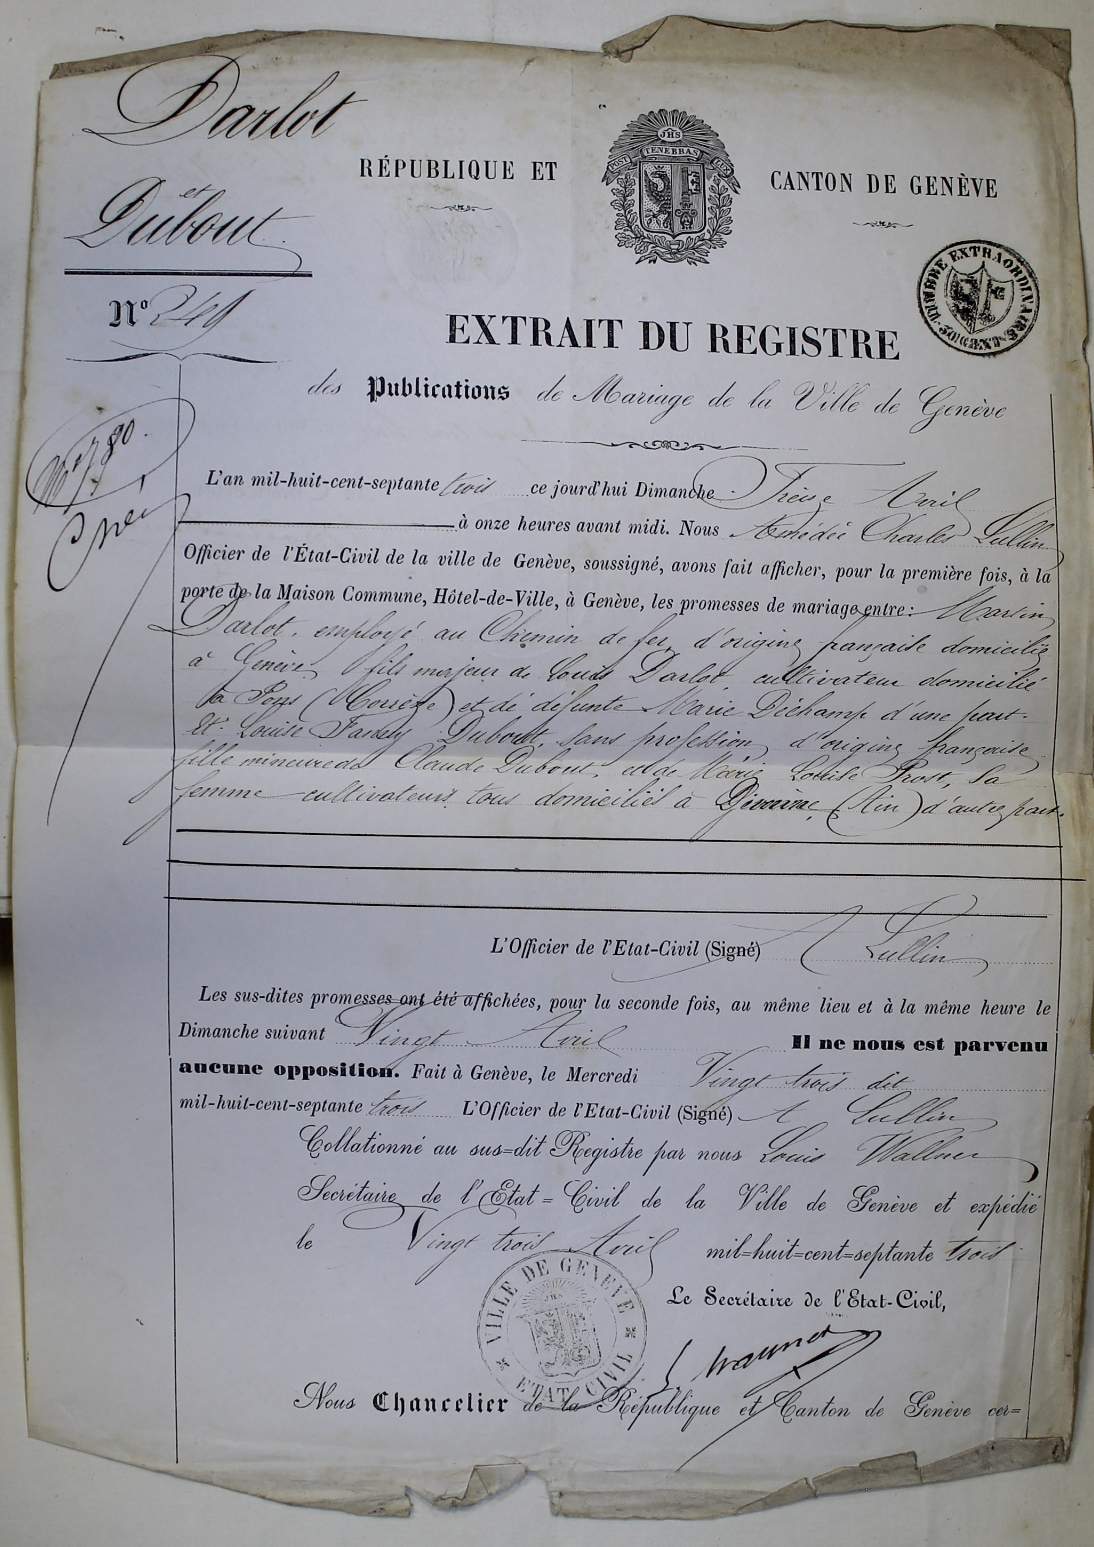 Darlot
et
Dubout
Nº 249
JHS
POST TENEBRAS LUX
RÉPUBLIQUE ET CANTON DE GENÈVE
TIMBRE EXTRAORDINAIRE
EXTRAIT DU REGISTRE
des Publications de Mariage de la Ville de Genève
L'an mil-huit-cent-septante trois ce jourd'hui Dimanche Treize Avril
à onze heures avant midi. Nous Amédée Charles Lullin
Officier de l'État-Civil de la ville de Genève, soussigné, avons fait afficher, pour la première fois, à la
porte de la Maison Commune, Hôtel-de-Ville, à Genève, les promesses de mariage entre: Martin
Darlot, employé au Chemin de fer, d'origine française domicilié
à Genève, fils majeur de Louis Darlot, cultivateur domicilié
à (Corrèze) et de défunte Marie Déchamp d'une part.
Et Louise Dubout, sans profession, d'origine française
fille mineure de Claude Dubout, et de Marie Louise Prost, sa
femme cultivateurs tous domiciliés à Divonne, (Ain) d'autre part.
L'Officier de l'Etat-Civil (Signé) A Lullin
Les sus-dites promesses ont été affichées, pour la seconde fois, au même lieu et à la même heure le
Dimanche suivant Vingt Avril Il ne nous est parvenu
aucune opposition. Fait à Genève, le Mercredi Vingt trois dit
mil-huit-cent-septante trois L'Officier de l'Etat-Civil (Signé) A Lullin
Collationné au sus=dit Registre par nous Louis Wallner
Secrétaire de l'Etat=Civil de la Ville de Genève et expédié
le Vingt trois Avril mil=huit=cent=septante trois
Le Secrétaire de l'Etat-Civil,
VILLE DE GENÈVE
ETAT CIVIL
L Wallner
Nous Chancelier de la République et Canton de Genève cer=